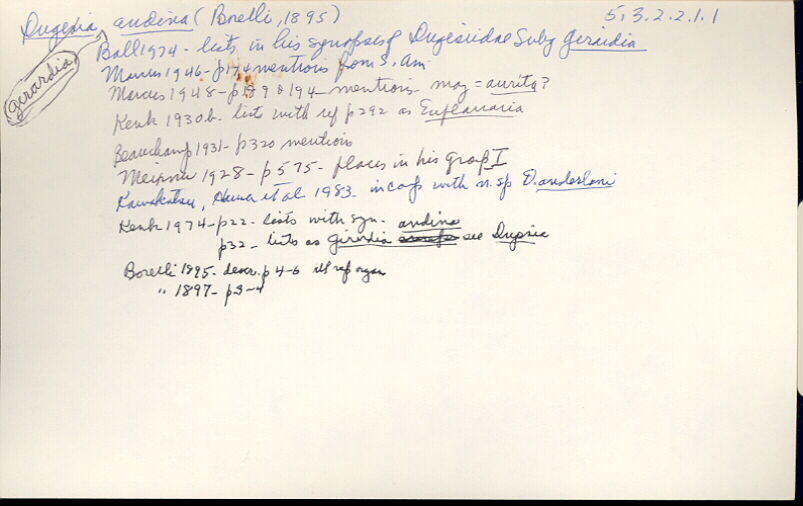 Dugesia andina (Borelli, 1895) 5.3.2.2.1.1
girardia
Ball 1974 - lists in his synopsis of Dugesiidae Subg Girardia
Marcus 1946 - p174 mentions from S. Am
Marcus 1948 - p189 & 194 - mentions - may = aurita?
Kenk 1930b. lists with ref p292 as Euplanaria
Beauchamp 1931 - p320 mentions
Meixner 1928 - p575 - places in his group I
Kawakatsu, et al 1983 - in comp with n. sp D. anderlani
Kenk 1974 - p22 - lists with syn. andina
p32 - lists as Girardia see Dugesia
Borelli 1895 - descr. p4-6 ill rep organ
" 1897 - p3-4